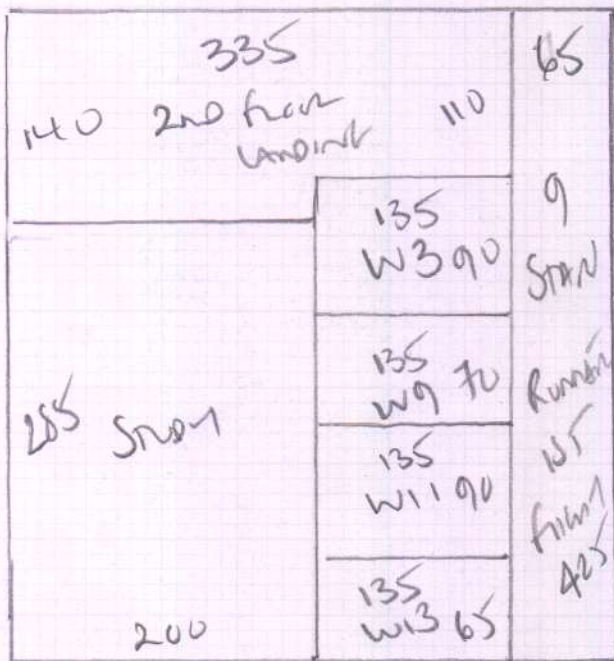 335
140 2ND FLOOR 110
LANDING
65
135
W3 90
9
STAIR
RUNNER
1ST
FLIGHT
425
135
W9 70
285 STUDY
135
W11 90
135
W13 65
200